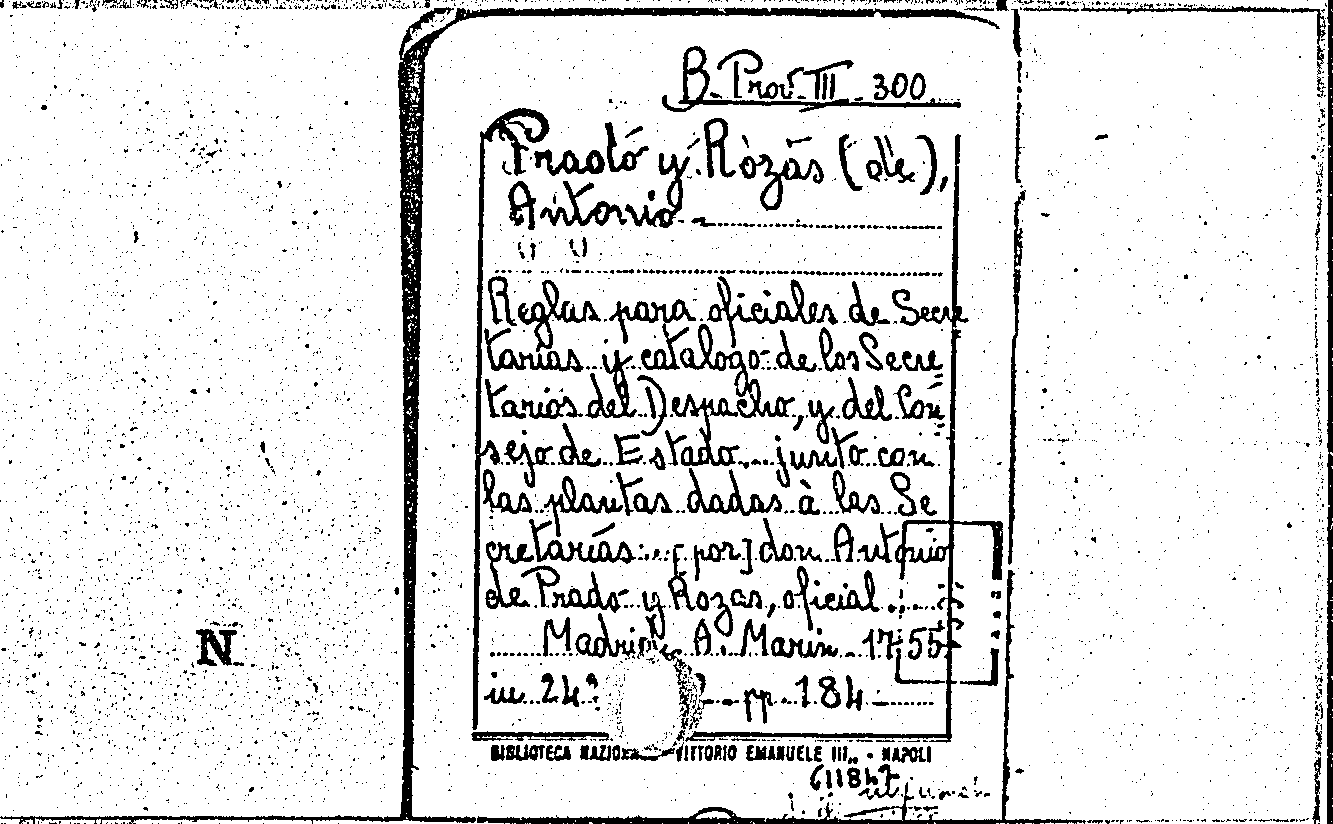 B. Prov. III. 300
Prado y Rozas (de),
Antonio -
Reglas para oficiales de Secre
tarías y catalogo de los Secre
tarios del Despacho, y del Con
sejo de Estado... junto con
las plantas dadas à las Se
cretarías... [por] don Antonio
de Prado y Rozas, oficial...
Madrid, A. Marin - 1755
in 24º pp. 184 -
N
BIBLIOTECA NAZIONA VITTORIO EMANUELE III,, - NAPOLI
611847